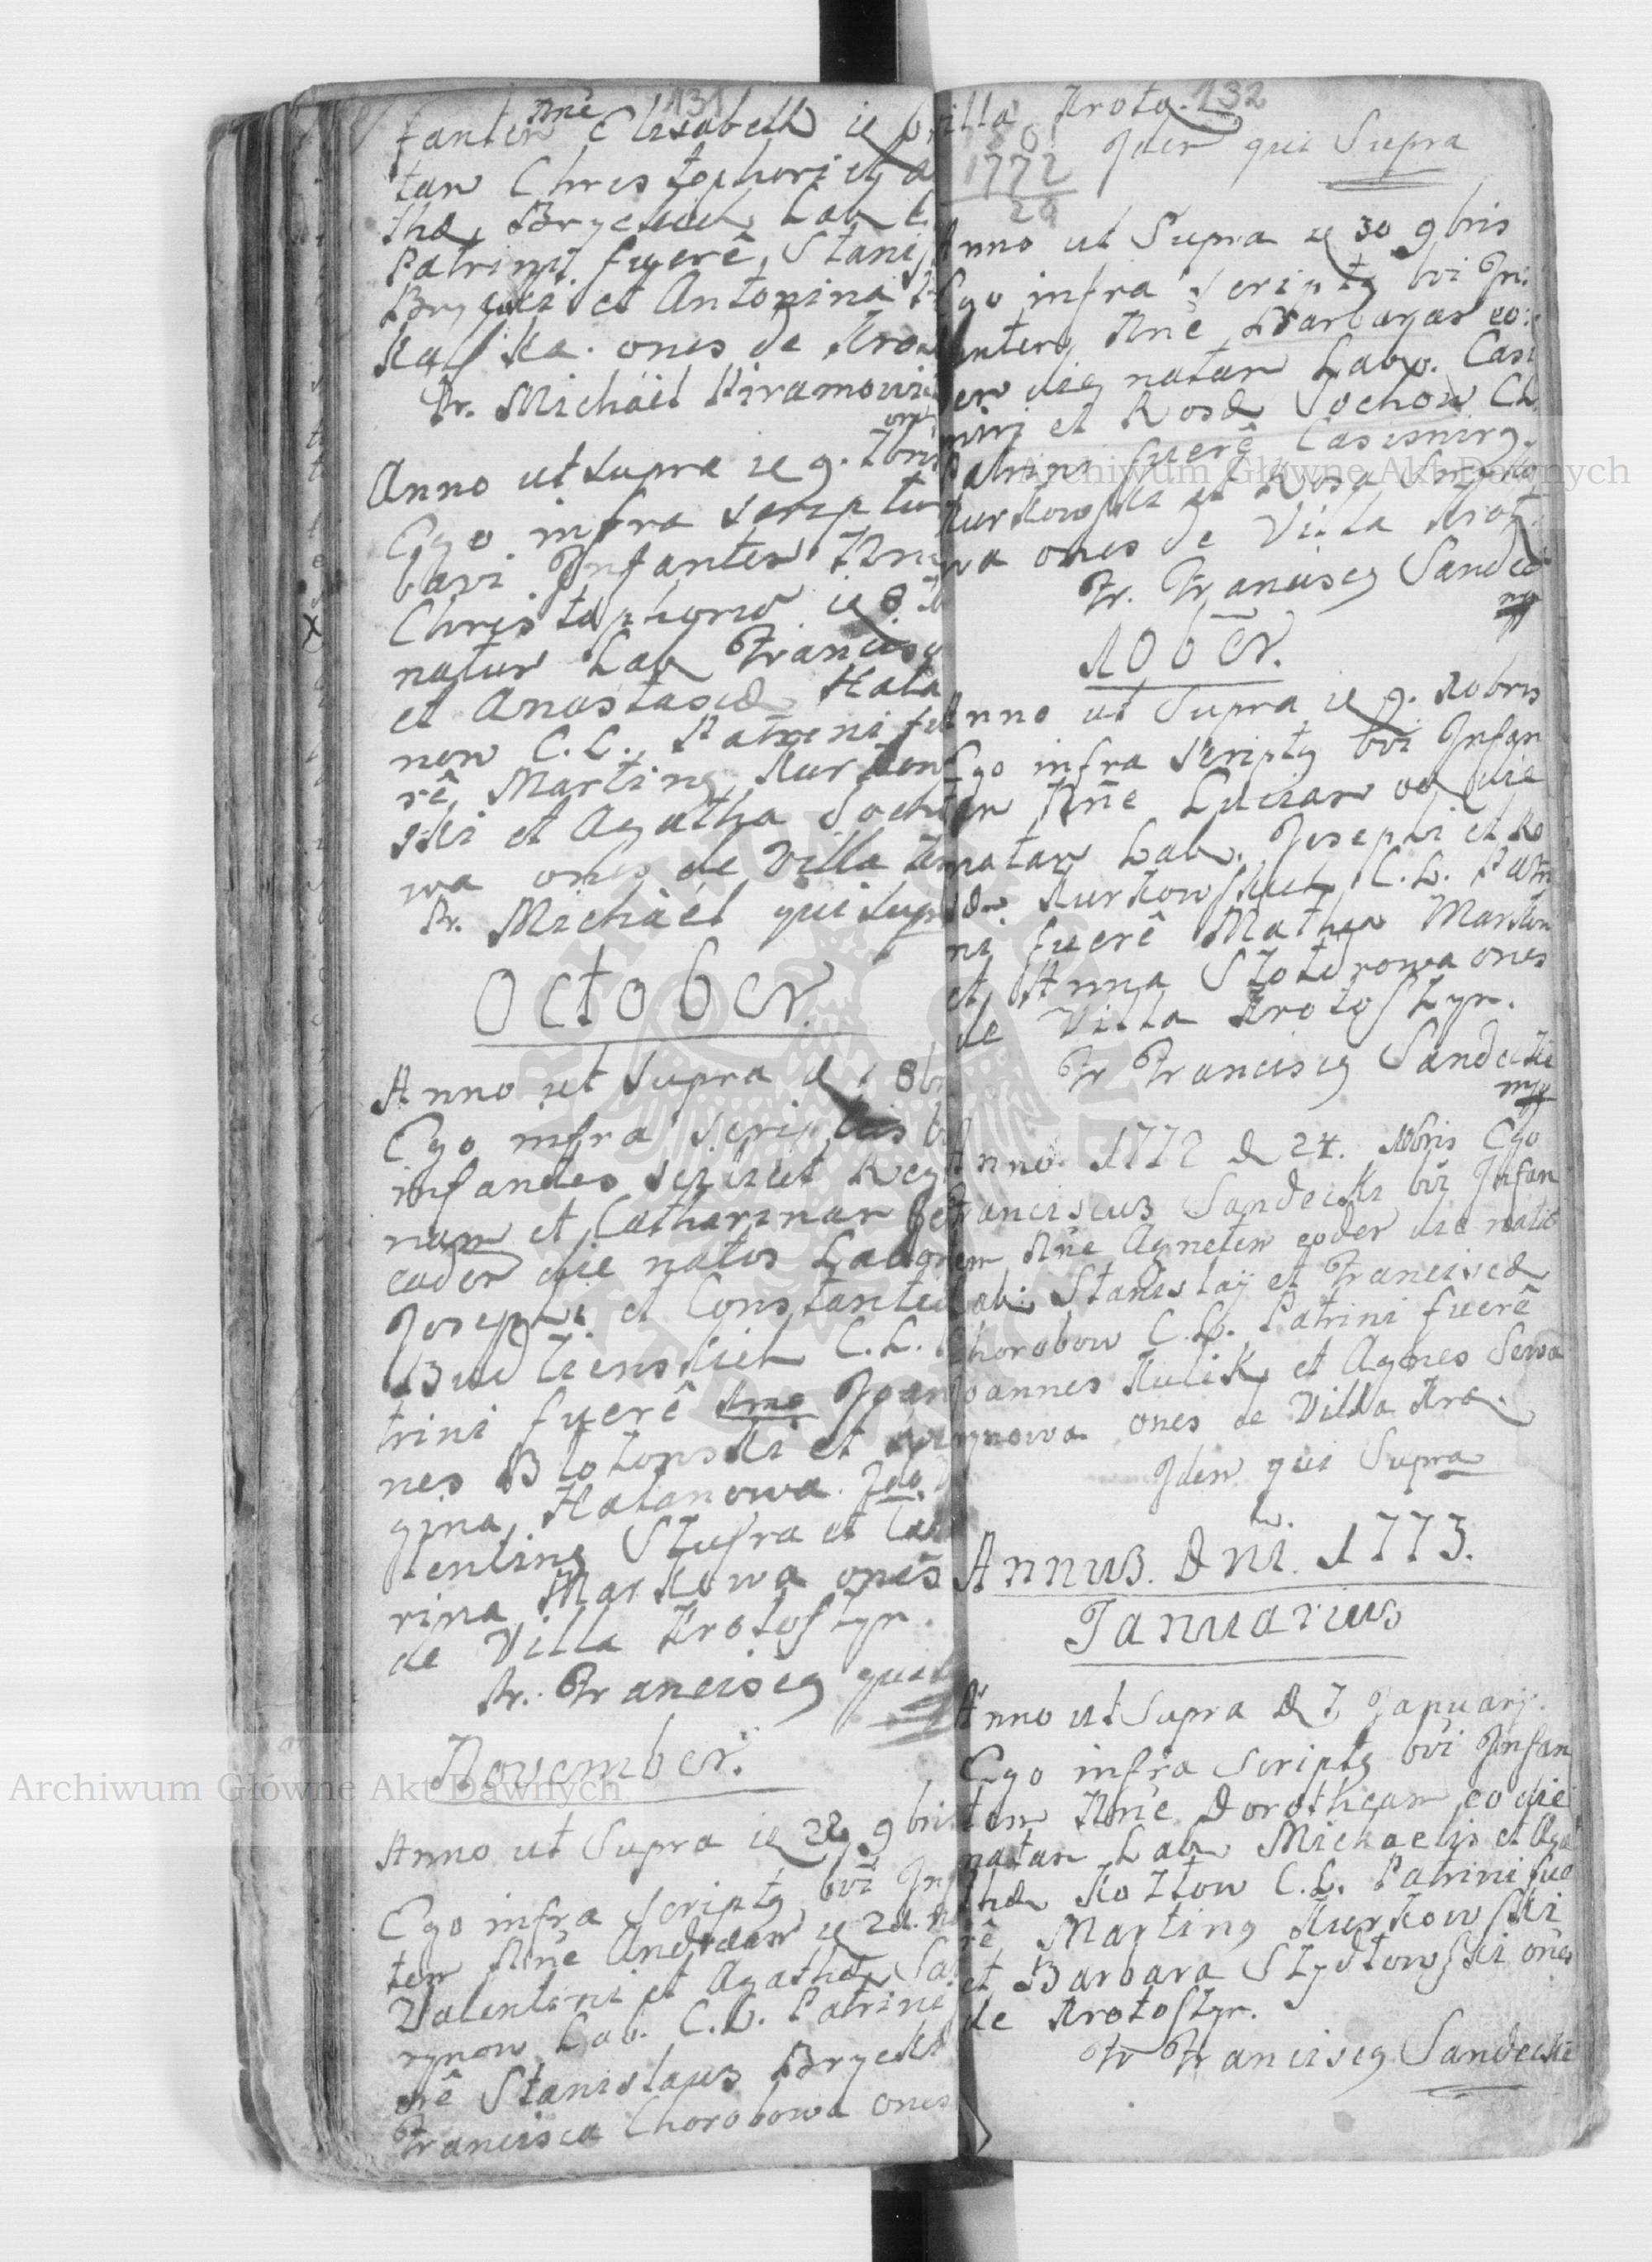 131
fanter Nne Elisabeth ie
tan Christophori et a
thæ Bryckich Lab
Patrini fuerê Stani
Brycki et Antonina
Kalska. ones de Kro
Fr. Michael Kiramowi
Anno ut supra ie 9. 7bris
Ego infra scriptu
bavi Infanter Nne
Christophorum ie 8
natum Lab Francisci
et Anastasiæ Hala
now C.L. Patrini fue
rê Marting Kurkow
ski et Agatha Soch
wa ones de Villa
Fr. Michael qui supr
October.
Anno ut supra d 1 8br
Ego infra scriptus b
infantes scilicet Regi
nam et Catharinam
eoder die natos Labor
Josephi et Constantiæ
Budzienskich C.L.
trini fuerê Imo Joan
nes Blotonski et Re
gina Halanowa. 2do
lenting Szufra et Cat
rina Markowa ones
de Villa Krotoszyn.
Fr. Franciscg qui
November.
Anno ut Supra ie 28 9bri
Ego infra Scriptg bvi Inf
ten Nne Andream ie 2d.
Valentini et Agathæ Sa
rynow Lab. C.L. Patrini
erê Stanislaus Bryck
Francisca Chorobowa ones
132
villa Kroto.
Idem qui Supra
1772
29
Anno ut Supra ie 30 9bris
Ego infra scriptg bvi In
fantem Nne Barbaram eo
der die natan Labo. Casi
miri et Rosæ Sochow C.L.
Patrini fuerê Casimirg
Kurkowski et Rosa
wa ones de Villa Krot
Fr. Franciscg Sandecki
mp
10bêr.
Anno ut Supra ie 9. 10bris
Ego infra Scriptg bvi Infan
ten Nne Luciam eo die
natan Lab. Josephi et Ro
sæ Kurkowskich C.L. Patri
ni fuerê Mathia Markow
et Anna Szoterowa ones
de Villa Krotoszyn.
Fr Franciscg Sandecki
mp
Anno 1772 d 24. 10bris Ego
Franciscus Sandecki bvi Infan
tem Nne Agneten eoder die natã
Lab: Stanislaÿ et Franciscæ
Chorobow C.L. Patrini fuerê
Joannes Kulik et Agnes Sewa
rynowa ones de Villa Kro.
Idem qui Supra
Annus. Dni. 1773.
Januarius
Anno ut Supra d 7 Januarij.
Ego infra scriptg bvi Infan
tem Nne Dorotheam eo die
natan Lab Michaelis et Aga
thæ Kozłow C.L. Patrini fue
rê Marting Kurkowski
et Barbara Szydłowski ones
de Krotoszyn.
Fr Franciscg Sandecki
Archiwum Główne Akt Dawnych
Archiwum Główne Akt Dawnych